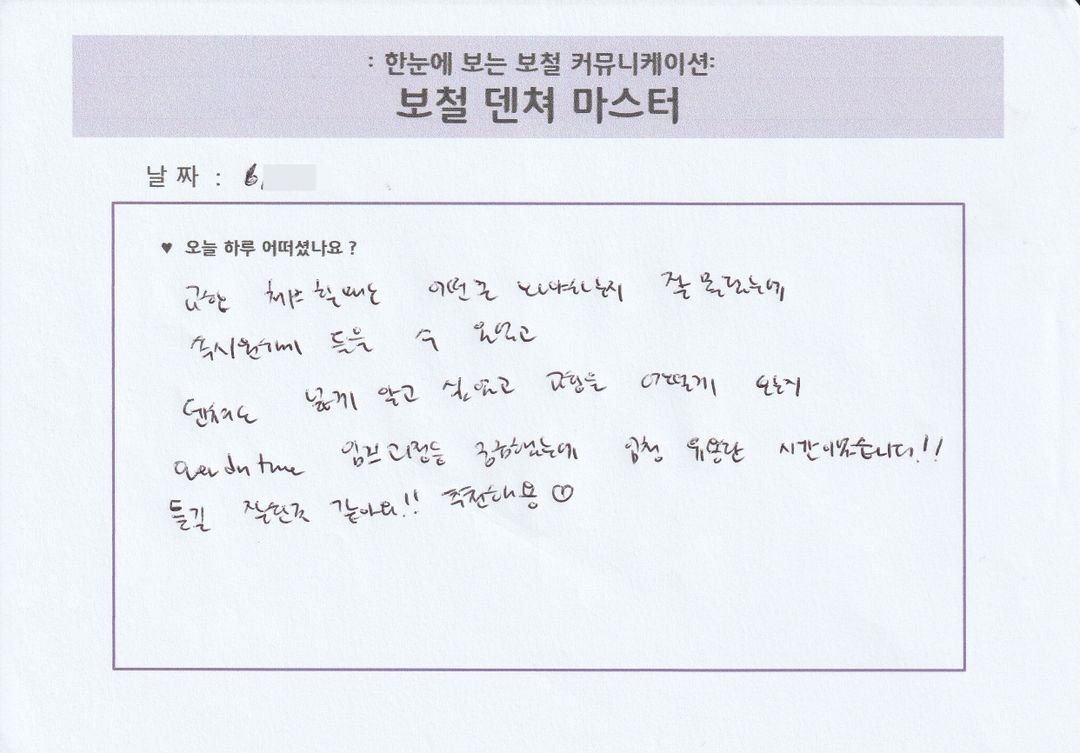 : 한눈에 보는 보철 커뮤니케이션:
보철 덴쳐 마스터
날 짜 : 6.
♥ 오늘 하루 어떠셨나요 ?
교합 체크 할때도 어떤걸 봐야하는지 잘 몰랐는데
속시원하게 들을 수 있었고
덴쳐도 넓게 알고 싶었고 교합을 어떻게 보는지
over denture 임프 과정등 궁금했는데 엄청 유용한 시간이였습니다!!
듣길 잘한것 같아요!! 추천해용 ♡